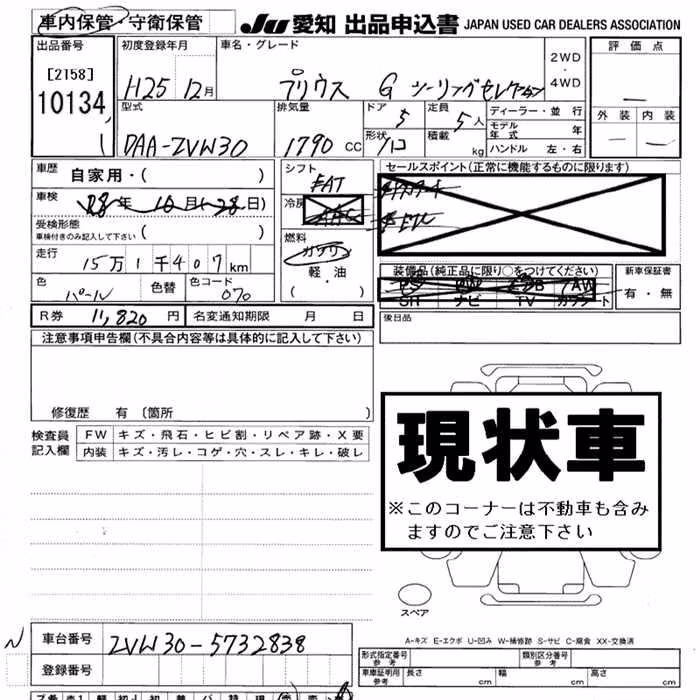 車内保管・守衛保管
JU 愛知 出品申込書 JAPAN USED CAR DEALERS ASSOCIATION
出品番号
[2158]
10134
初度登録年月
H25 12月
車名・グレード
プリウス G ツーリングセレクション
2WD
・
4WD
評価点
外装 内装
型式
DAA-ZVW30
排気量
1790 CC
ドア
5
形状
定員
5人
積載
kg
ディーラー・並行
モデル年式 年
ハンドル 左・右
車歴
自家用・( )
車検
R8年 10月(28日)
受検形態
車検付きのみ記入して下さい ( )
走行
15万1千407km
色
パール
色替
色コード
070
シフト
FAT
冷房
AAC
燃料
ガソリン
軽・油
・( )
セールスポイント(正常に機能するものに限ります)
装備品(純正品に限り○をつけてください)
SR ナビ TV カワシート
新車保証書
有・無
R券 11,820円
名変通知期限 月 日
後日品
注意事項申告欄(不具合内容等は具体的に記入して下さい)
修復歴 有〔箇所 〕
検査員
記入欄
FW キズ・飛石・ヒビ割・リペア跡・X要
内装 キズ・汚レ・コゲ・穴・スレ・キレ・破レ
現状車
※このコーナーは不動車も含み
ますのでご注意下さい
スペア
A-キズ E-エクボ U-凹み W-補修跡 S-サビ C-腐食 XX-交換済
車台番号
ZVW30-5732838
登録番号
形式指定番号
参考
類別区分番号
参考
車庫証明用
参考
長さ cm
幅 cm
高さ cm